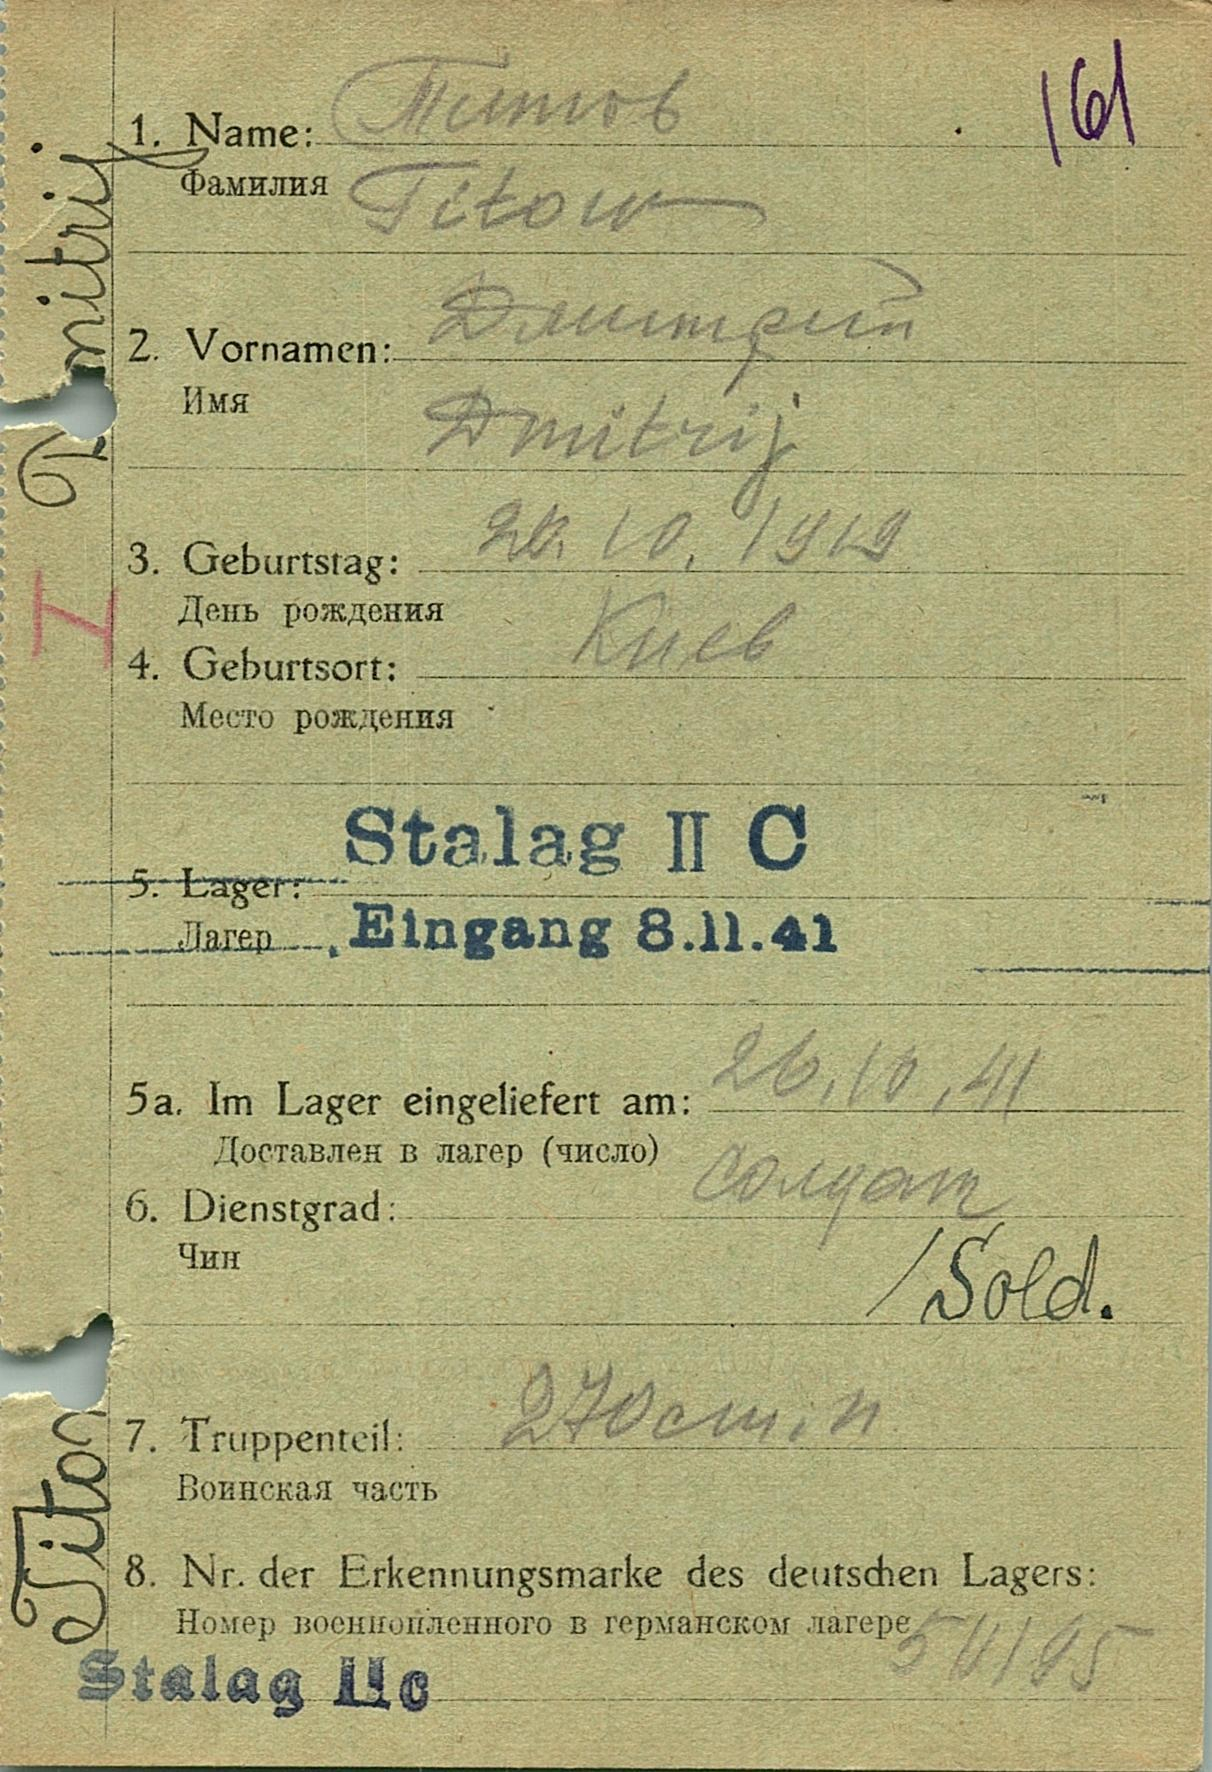 161
Титов
1. Name:
Фамилия
Titow
Дмитрий
2. Vornamen:
Имя
Dmitrij
3. Geburtstag: 20. 10. 1919
День рождения
4. Geburtsort: Киев
Место рождения
Stalag II C
5. Lager:
Лагер
Eingang 8.11.41
5a. Im Lager eingeliefert am: 26.10.41
Доставлен в лагер (число)
6. Dienstgrad: солдат
Чин
/Sold.
7. Truppenteil: 270
Воинская часть
8. Nr. der Erkennungsmarke des deutschen Lagers:
Номер военнопленного в германском лагере
Stalag IIc
Titow
Dmitrij
I